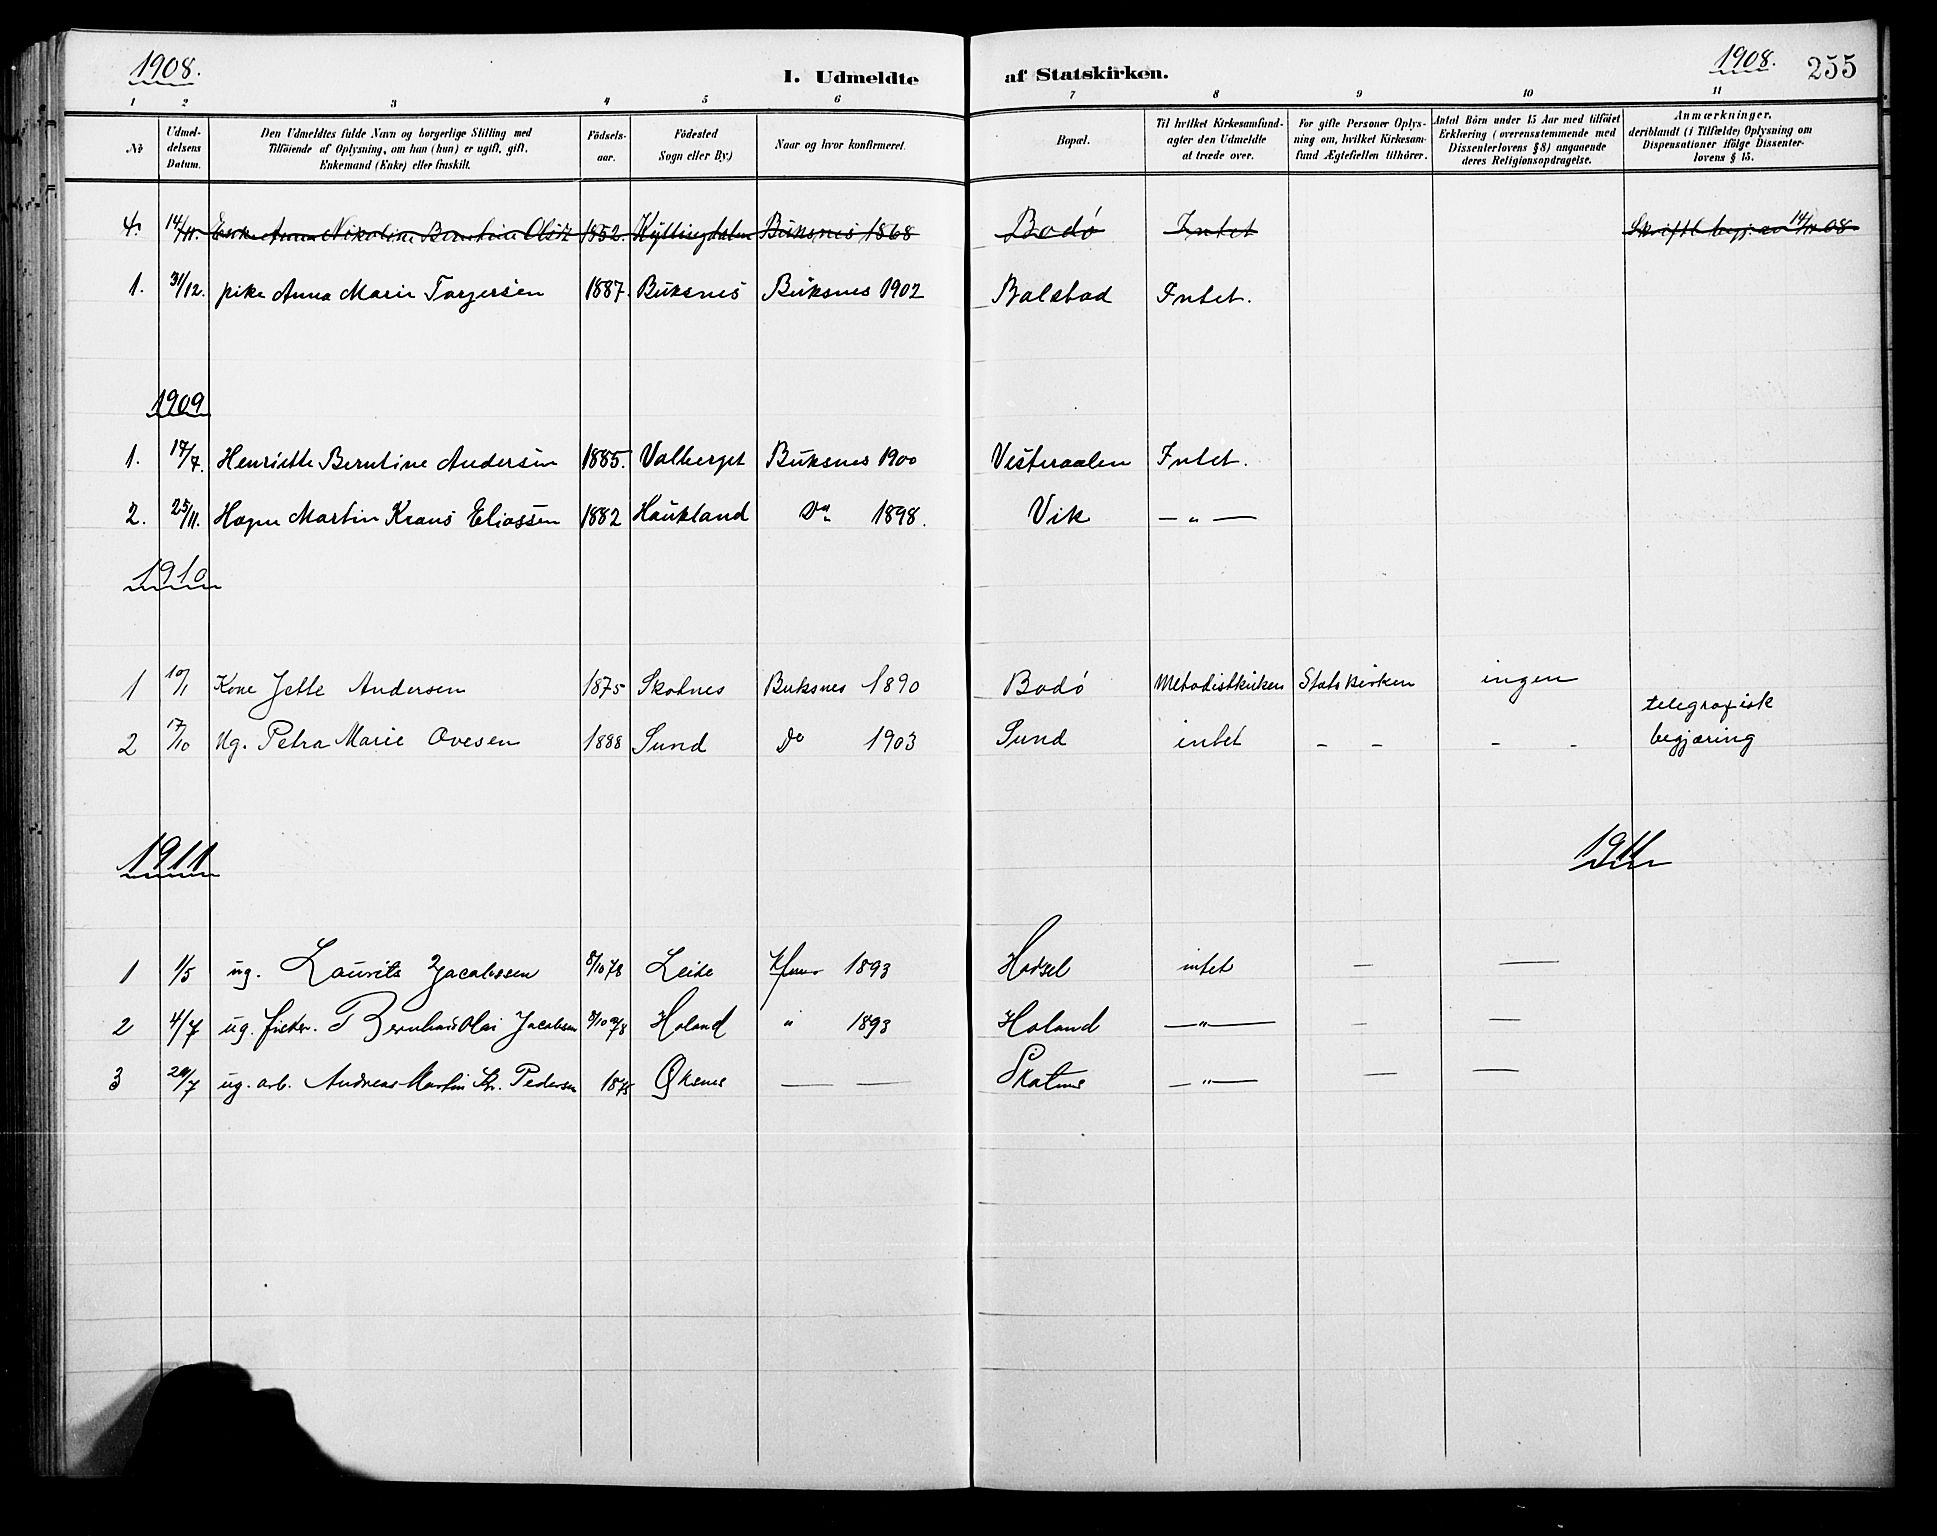 1908.
I. Udmeldte af Statskirken.
1908. 255
1 2 3 4 5 6 7 8 9 10 11
No
Udmel-
delsens
Datum.
Den Udmeldtes fulde Navn og borgerlige Stilling med
Tilföiende af Oplysning, om han (hun) er ugift, gift,
Enkemand (Enke) eller fraskilt.
Födsels-
aar.
Födested
Sogn eller By.)
Naar og hvor konfirmeret.
Bopæl.
Til hvilket Kirkesamfund-
agter den Udmeldte
at træde over.
For gifte Personer Oplys-
ning om, hvilket Kirkesam-
fund Ægtefællen tilhörer.
Antal Börn under 15 Aar med tilföiet
Erklæring (overensstemmende med
Dissenterlovens § 8) angaaende
deres Religionsopdragelse.
Anmærkninger,
deriblandt (i Tilfælde) Oplysning om
Dispensationer ifölge Dissenter-
lovens § 15.
4. 14/11. Enke Anna Nikoline Berntine 1852. Buksnes 1868 Bodö Intet Skriftl. begj. av 14/11 08
1. 31/12. pike Anna Marie Torgersen 1887. Buksnes Buksnes 1902 Balstad Intet.
1909
1. 17/7. Henriette Berntine Andersen 1885. Valberget Buksnes 1900 Vesteraalen Intet.
2. 25/11. Hagen Martin Kraus Eliassen 1882 Haukland Do 1898. Vik — „ —
1910
1 10/1 Kone Jette Andersen 1875 Skotnes Buksnes 1890 Bodö Metodistkirken Statskirken ingen
2 17/10 Ug. Petra Marie Ovesen 1888 Sund Do 1903 Sund intet - - - - telegrafisk
begjæring
1911 1911
1 1/5 ug. Laurits Jacobssen 8/10 78 Leite 1893 Hadsel intet — —
2 4/7 ug. Bernhard Olai Jacobsen 8/10 78 Holand " 1893 Holand — " — — —
3 24/7 ug. arb. Andreas Martin Kr. Pedersen 1875 — — — " — — —